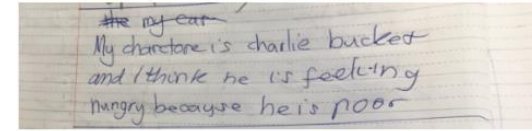 the my car
My charctore is charlie bucket
and I think he is feeling
hungry because he is poor